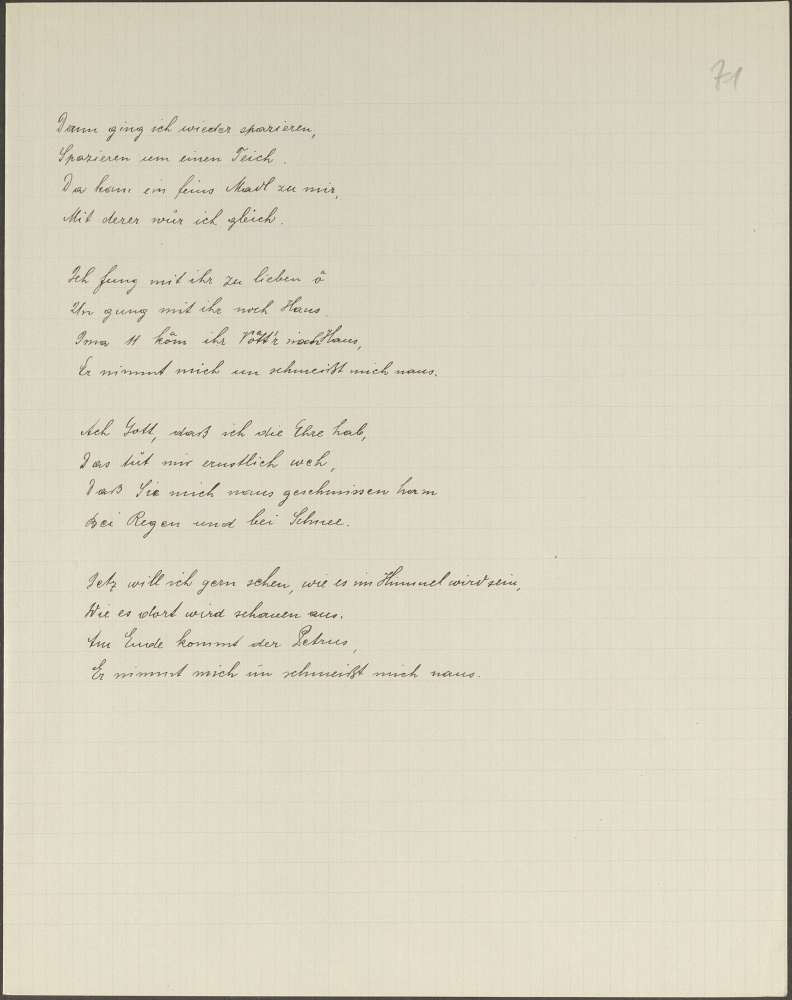 71
Dann ging ich wieder spazieren,
Spazieren um einen Teich.
Da kam ein feins Madl zu mir,
Mit derer wür ich gleich.
Ich fung mit ihr zu lieben å
Un gung mit ihr noch Haus.
Ima 11 kåm ihr Vått'r nach Haus,
Er nimmt mich un schmeißt mich naus.
Ach Gott, daß ich die Ehre hab,
Das tüt mir ernstlich weh,
Daß Sie mich naus geschmissen ham
Bei Regen und bei Schnee.
Jetz will ich gern sehen, wie es im Himmel wird sein,
Wie es dort wird schauen aus.
Am Ende kommt der Petrus,
Er nimmt mich ün schmeißt mich naus.